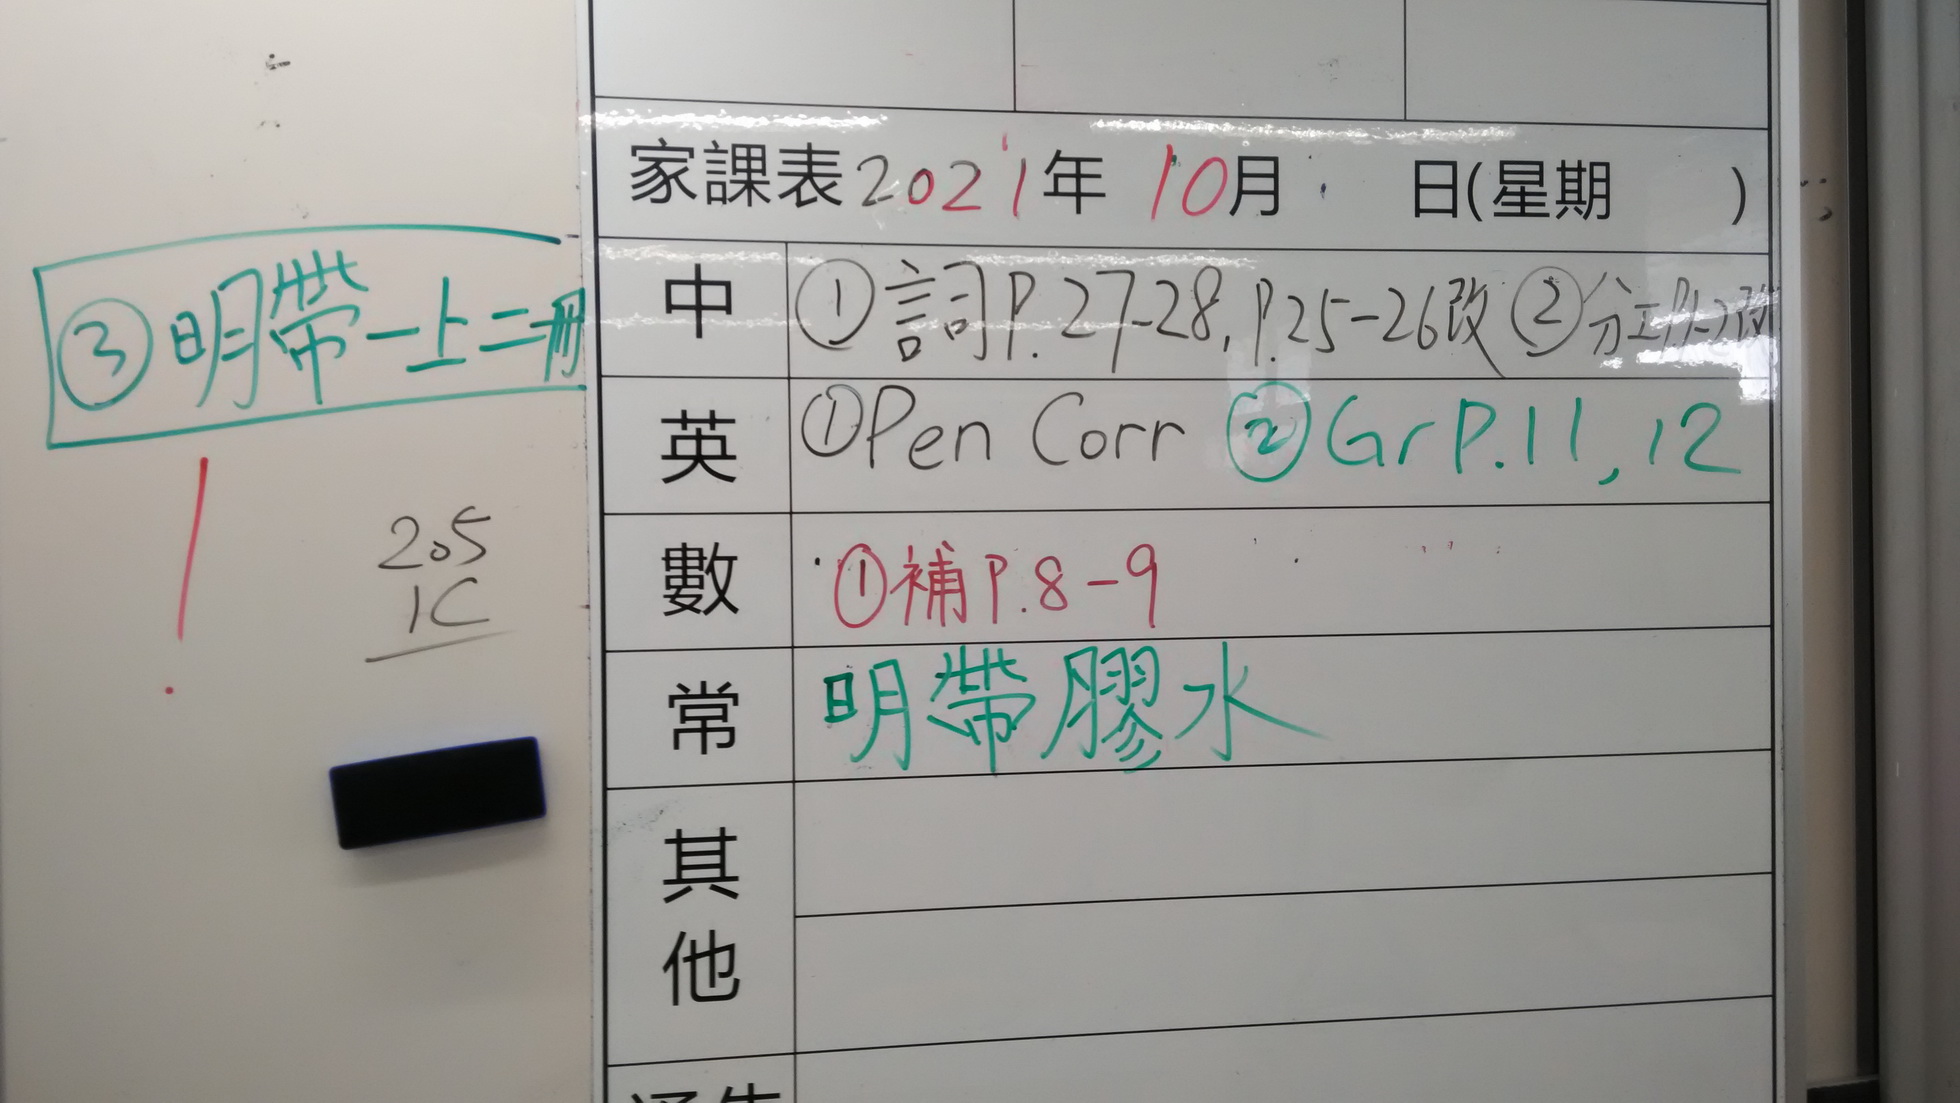 家課表2021年 10月 日(星期 )
中 ①詞P.27-28, P.25-26改 ②分工P.1-2改
③明帶一上二冊
英 ①Pen Corr ②Gr P.11, 12
數 ①補P.8-9
205
1C
常 明帶膠水
其他